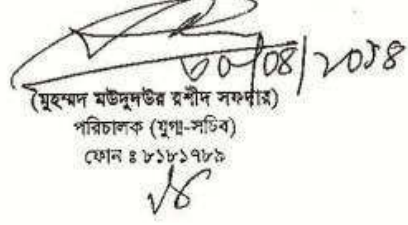 ৩০/০৪/২০১৪
(মুহম্মদ মউদুদউর রশীদ সফদার)
পরিচালক (যুগ্ম-সচিব)
ফোন ঃ ৮১৮১৭৮৯